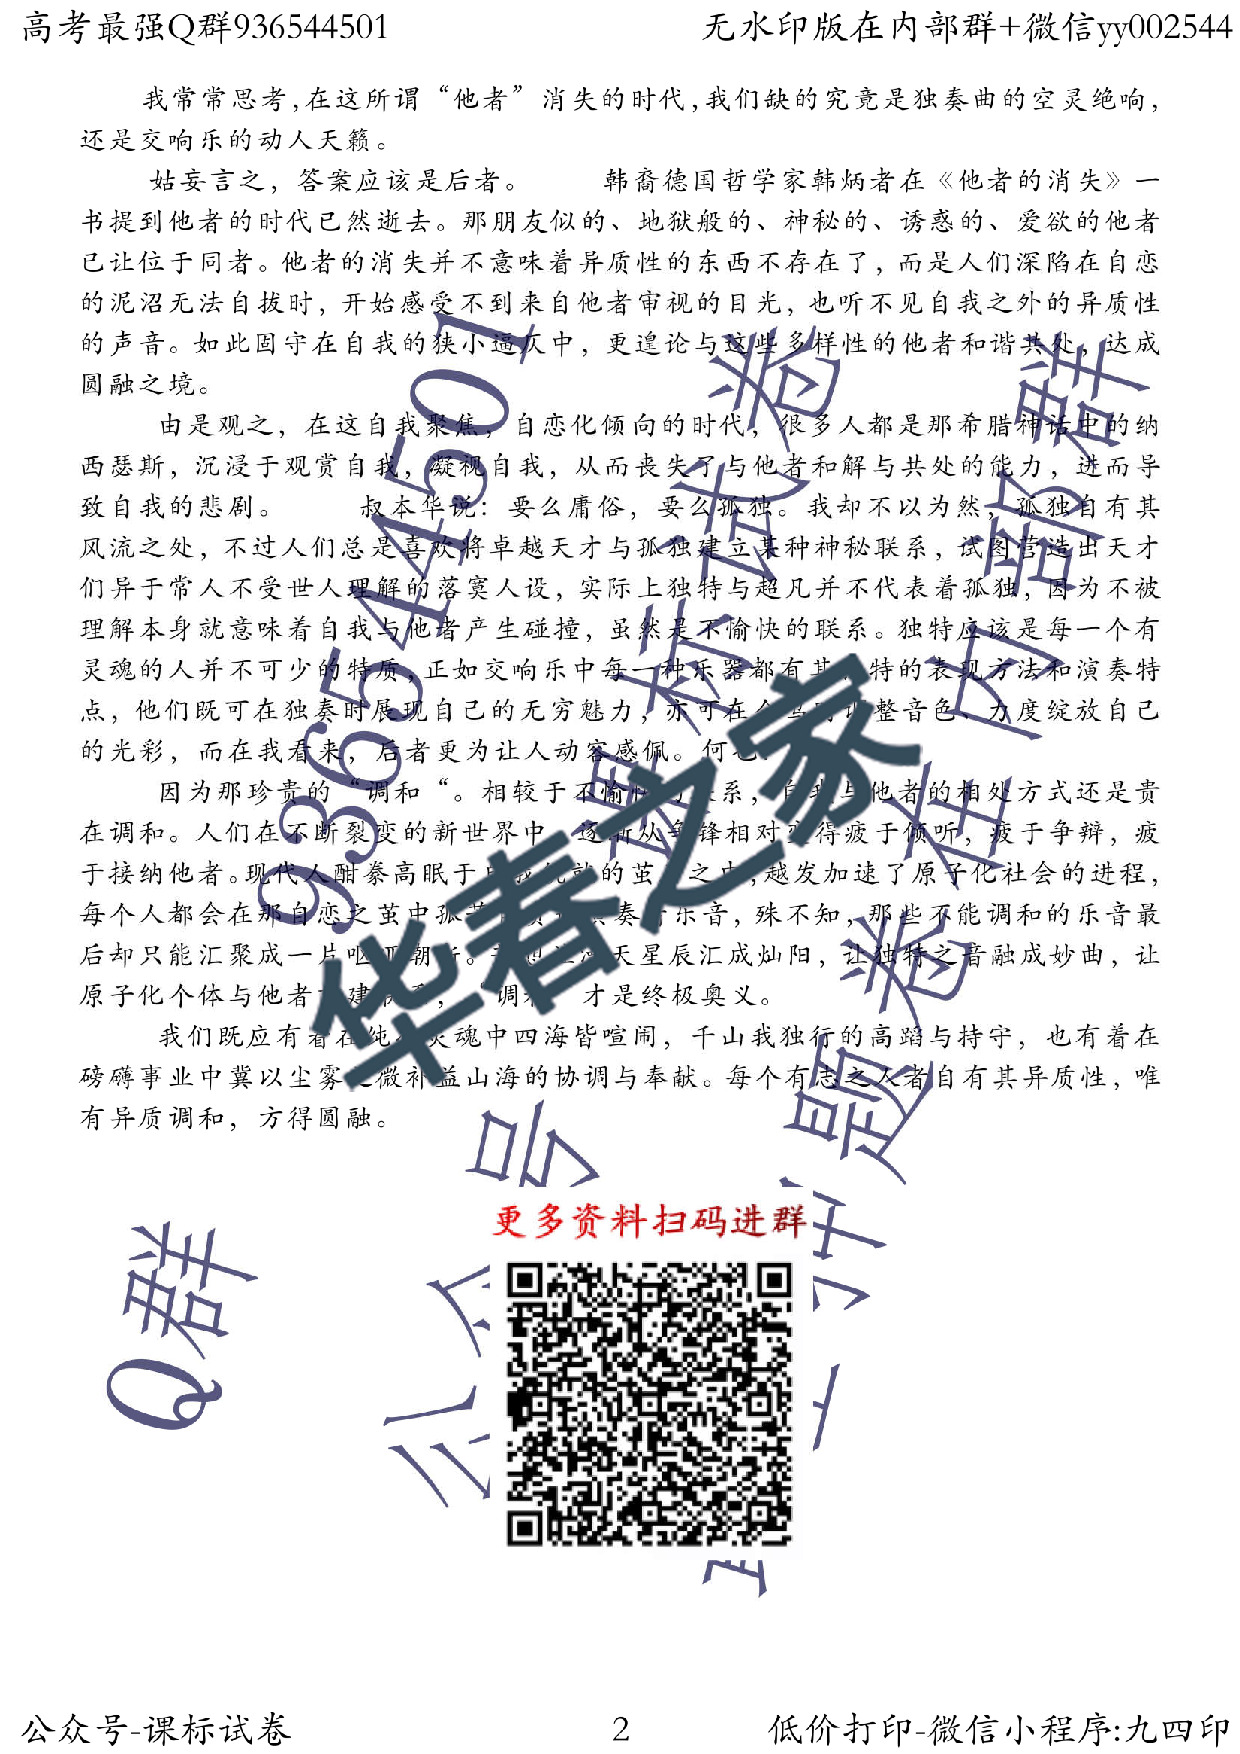 高考最强Q群936544501
无水印版在内部群+微信yy002544
我常常思考,在这所谓“他者”消失的时代,我们缺的究竟是独奏曲的空灵绝响,
还是交响乐的动人天籁。
姑妄言之，答案应该是后者。 韩裔德国哲学家韩炳者在《他者的消失》一
书提到他者的时代已然逝去。那朋友似的、地狱般的、神秘的、诱惑的、爱欲的他者
已让位于同者。他者的消失并不意味着异质性的东西不存在了，而是人们深陷在自恋
的泥沼无法自拔时，开始感受不到来自他者审视的目光，也听不见自我之外的异质性
的声音。如此固守在自我的狭小逼仄中，更遑论与这些多样性的他者和谐共处，达成
圆融之境。
由是观之，在这自我聚焦，自恋化倾向的时代，很多人都是那希腊神话中的纳
西瑟斯，沉浸于观赏自我，凝视自我，从而丧失了与他者和解与共处的能力，进而导
致自我的悲剧。 叔本华说：要么庸俗，要么孤独。我却不以为然，孤独自有其
风流之处，不过人们总是喜欢将卓越天才与孤独建立某种神秘联系，试图营造出天才
们异于常人不受世人理解的落寞人设，实际上独特与超凡并不代表着孤独，因为不被
理解本身就意味着自我与他者产生碰撞，虽然是不愉快的联系。独特应该是每一个有
灵魂的人并不可少的特质,正如交响乐中每一种乐器都有其 特的表现方法和演奏特
点，他们既可在独奏时展现自己的无穷魅力，亦可在 整音色、力度绽放自己
的光彩，而在我看来，后者更为让人动容感佩。何
因为那珍贵的“调和“。相较于不愉 系，自我与他者的相处方式还是贵
在调和。人们在不断裂变的新世界中 逐渐从争锋相对变得疲于倾听，疲于争辩，疲
于接纳他者。现代人酣豢高眠于 的茧 之中,越发加速了原子化社会的进程，
每个人都会在那自恋之茧中孤 奏 乐音，殊不知，那些不能调和的乐音最
后却只能汇聚成一片呕 天星辰汇成灿阳，让独特之音融成妙曲，让
原子化个体与他者 建 ，“调和 才是终极奥义。
我们既应有着在纯 灵魂中四海皆喧闹，千山我独行的高蹈与持守，也有着在
磅礴事业中冀以尘雾之微补益山海的协调与奉献。每个有志之人者自有其异质性，唯
有异质调和，方得圆融。
华春之家
Q群
936544501
公众号
课标试卷
题卷在内部群
更多资料扫码进群
公众号-课标试卷
2
低价打印-微信小程序:九四印